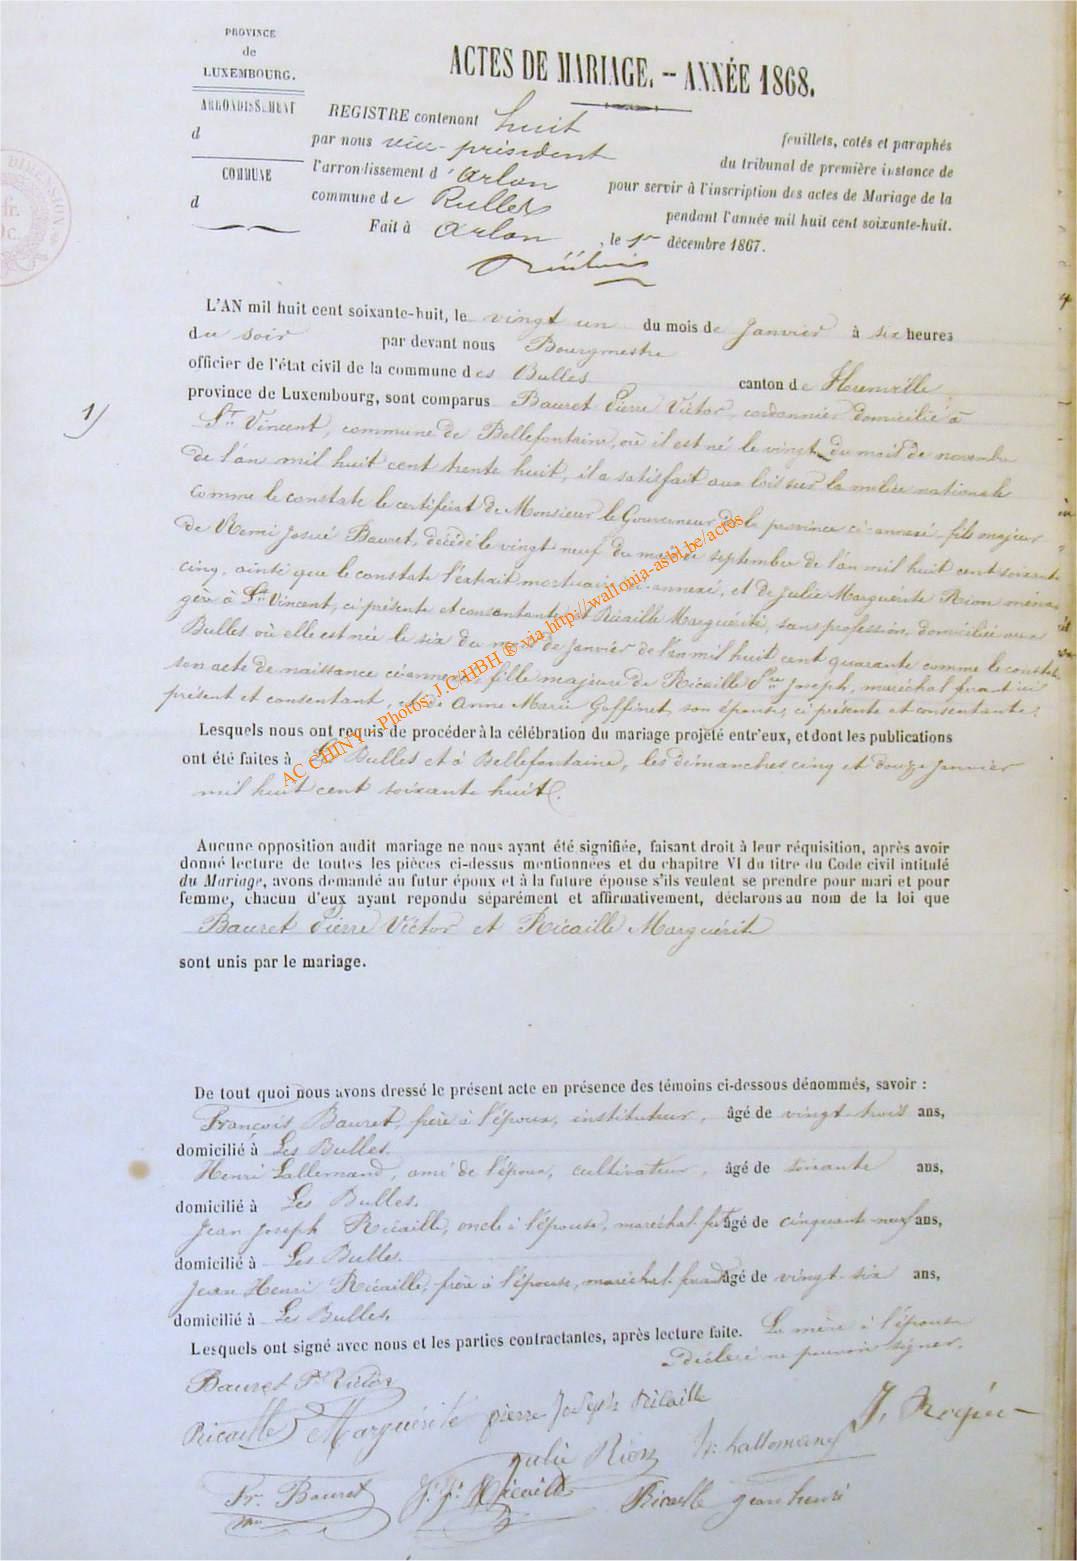 PROVINCE
de
LUXEMBOURG.
ARRONDISSEMENT
d
COMMUNE
d
ACTES DE MARIAGE. — ANNÉE 1868.
REGISTRE contenant huit feuillets, cotés et paraphés
par nous vice-président du tribunal de première instance de
l'arrondissement d'Arlon pour servir à l'inscription des actes de Mariage de la
commune de Bulles pendant l'année mil huit cent soixante-huit.
Fait à Arlon, le 1er décembre 1867.
L'AN mil huit cent soixante-huit, le vingt un du mois de Janvier à six heures
du soir par devant nous Bourgmestre
officier de l'état civil de la commune des Bulles canton de Florenville,
province de Luxembourg, sont comparus Bauret Pierre Victor, cordonnier domicilié à
1/
St. Vincent, commune de Bellefontaine, où il est né le vingt du mois de novembre
de l'an mil huit cent trente huit, il a satisfait aux lois sur la milice nationale
comme le constate le certificat de Monsieur le Gouverneur de la province ci-annexé, fils majeur
de Remi Josué Bauret, décédé le vingt neuf du mois de septembre de l'an mil huit cent soixante
cinq, ainsi que le constate l'extrait mortuaire ci-annexé, et de Julie Marguérite Rion ména-
gère à St. Vincent, ci présente et consentante et Ricaille Marguérite, sans profession, domiciliée aux
Bulles où elle est née le six du mois de Janvier de l'an mil huit cent quarante comme le constate
son acte de naissance ci annexé, fille majeure de Ricaille Pre Joseph, maréchal ferant ici
présent et consentant, et de Anne Marie Goffinet, son épouse, ci présente et consentante.
Lesquels nous ont requis de procéder à la célébration du mariage projeté entr'eux, et dont les publications
ont été faites à Bulles et à Bellefontaine, les dimanches cinq et douze Janvier
mil huit cent soixante huit.
Aucune opposition audit mariage ne nous ayant été signifiée, faisant droit à leur réquisition, après avoir
donné lecture de toutes les pièces ci-dessus mentionnées et du chapitre VI du titre du Code civil intitulé
du Mariage, avons demandé au futur époux et à la future épouse s'ils veulent se prendre pour mari et pour
femme, chacun d'eux ayant repondu séparément et affirmativement, déclarons au nom de la loi que
Bauret Pierre Victor et Ricaille Marguérite
sont unis par le mariage.
De tout quoi nous avons dressé le présent acte en présence des témoins ci-dessous dénommés, savoir :
François Bauret, frère à l'époux, instituteur, âgé de vingt trois ans,
domicilié à Les Bulles.
Henri Lallemand, ami de l'époux, cultivateur, âgé de soixante ans,
domicilié à Les Bulles.
Jean Joseph Ricaille, oncle à l'épouse, maréchal-fert âgé de cinquante-neuf ans,
domicilié à Les Bulles.
Jean Henri Ricaille, frère à l'épouse, maréchal-ferant âgé de vingt-six ans,
domicilié à Les Bulles.
Lesquels ont signé avec nous et les parties contractantes, après lecture faite. La mère à l'épouse
a déclaré ne pouvoir signer.
Bauret Pre Victor
Ricaille Marguérite pierre Joseph Ricaille
Julie Rion h: Lallemand
Fr. Bauret J. J. Ricaille Ricaille jean henri
AC CHINY - Photos: J.C HBH ® via http://wallonia-asbl.be/actos